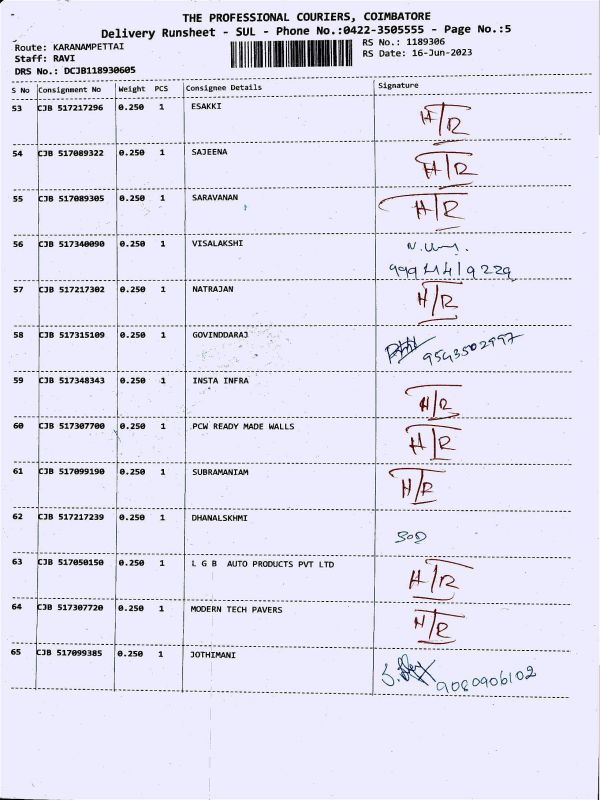 THE PROFESSIONAL COURIERS, COIMBATORE
Delivery Runsheet - SUL - Phone No.:0422-3505555 - Page No.:5
Route: KARANAMPETTAI
RS No.: 1189306
Staff: RAVI
RS Date: 16-Jun-2023
DRS No.: DCJB118930605
S No Consignment No Weight PCS Consignee Details Signature
53 CJB 517217296 0.250 1 ESAKKI H/R
54 CJB 517089322 0.250 1 SAJEENA H/R
55 CJB 517089305 0.250 1 SARAVANAN H/R
56 CJB 517340090 0.250 1 VISALAKSHI
57 CJB 517217302 0.250 1 NATRAJAN H/R
58 CJB 517315109 0.250 1 GOVINDDARAJ 9543502997
59 CJB 517348343 0.250 1 INSTA INFRA H/R
60 CJB 517307700 0.250 1 PCW READY MADE WALLS H/R
61 CJB 517099190 0.250 1 SUBRAMANIAM H/R
62 CJB 517217239 0.250 1 DHANALSKHMI
63 CJB 517050150 0.250 1 L G B AUTO PRODUCTS PVT LTD H/R
64 CJB 517307720 0.250 1 MODERN TECH PAVERS H/R
65 CJB 517099385 0.250 1 JOTHIMANI 9080906102